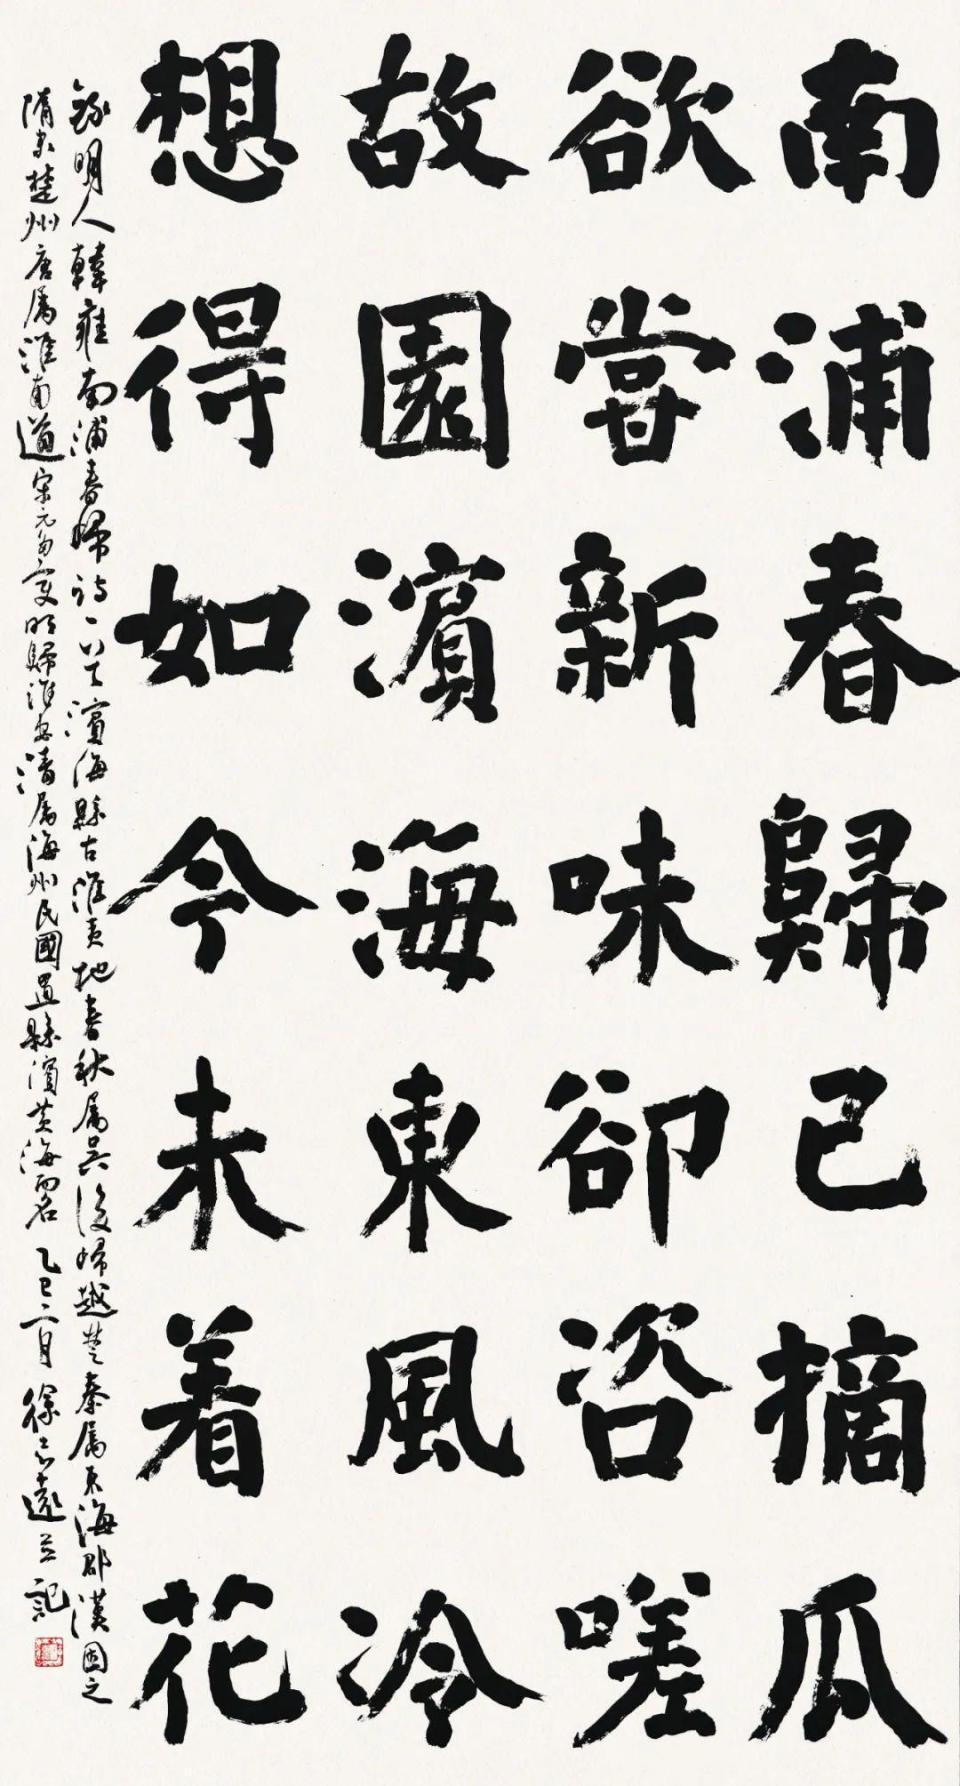 南浦春歸已摘瓜
欲嘗新味卻咨嗟
故園濱海東風冷
想得如今未着花
錄明人韓雍南浦春歸詩一首 濱海縣古淮夷地春秋屬吳後歸越楚秦屬東海郡漢因之
隋末楚州唐屬淮南道宋元多變明歸淮安清屬海州民國置縣濱黃海而名 乙巳二月 徐 遠 并記